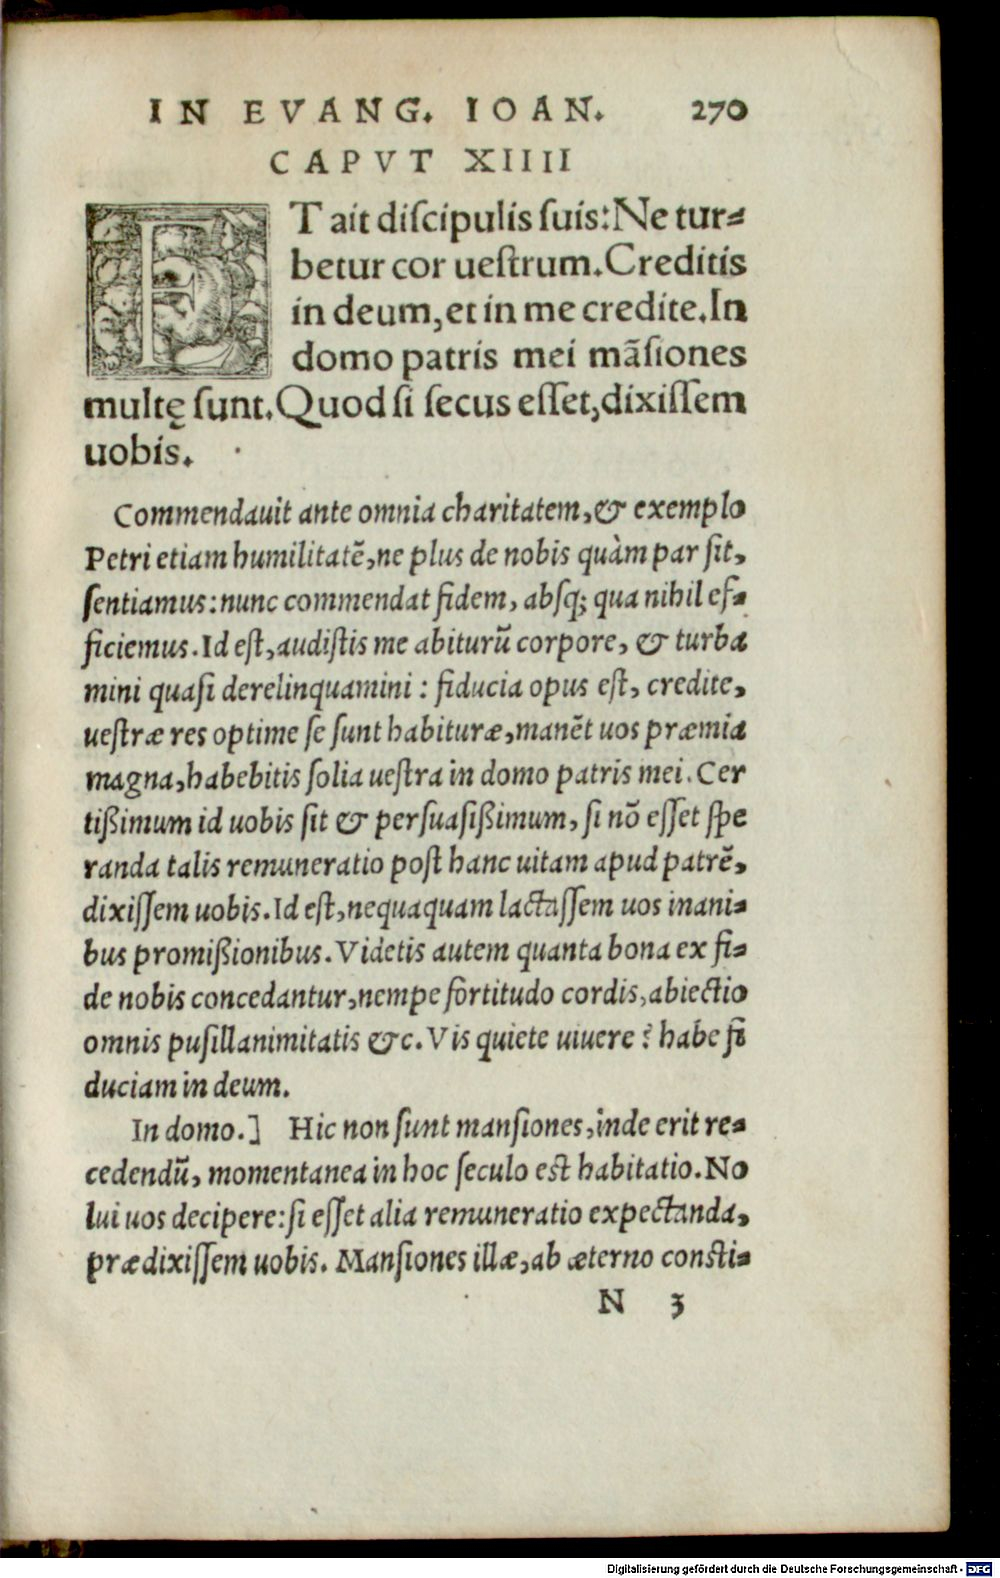 IN EVANG. IOAN. 270
CAPVT XIIII
ET ait diſcipulis ſuis: Ne tur⸗
betur cor ueſtrum. Creditis
in deum, et in me credite. In
domo patris mei mãſiones
multę ſunt. Quod ſi ſecus eſſet, dixiſſem
uobis.
Commendauit ante omnia charitatem, & exemplo
Petri etiam humilitatē, ne plus de nobis quàm par ſit,
ſentiamus: nunc commendat fidem, abſq; qua nihil ef⸗
ficiemus. Id eſt, audiſtis me abiturū corpore, & turba
mini quaſi derelinquamini: fiducia opus eſt, credite,
ueſtræ res optime ſe ſunt habituræ, manēt uos præmia
magna, habebitis ſolia ueſtra in domo patris mei. Cer
tißimum id uobis ſit & perſuaſißimum, ſi nō eſſet ſpe
randa talis remuneratio poſt hanc uitam apud patrē,
dixiſſem uobis. Id eſt, nequaquam lactaſſem uos inani⸗
bus promißionibus. Videtis autem quanta bona ex fi⸗
de nobis concedantur, nempe fortitudo cordis, abiectio
omnis puſillanimitatis &c. Vis quiete uiuere? habe fi
duciam in deum.
In domo.] Hic non ſunt manſiones, inde erit re⸗
cedendū, momentanea in hoc ſeculo eſt habitatio. No
lui uos decipere: ſi eſſet alia remuneratio expectanda,
prædixiſſem uobis. Manſiones illæ, ab æterno conſti⸗
N 3
Digitalisierung gefördert durch die Deutsche Forschungsgemeinschaft - DFG